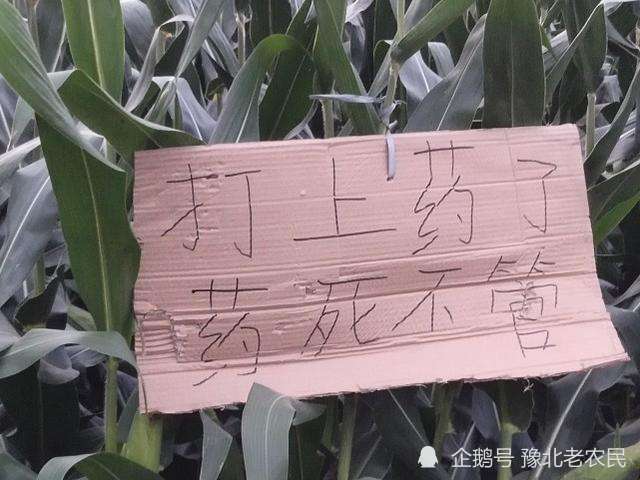 打上药了
药死不管
企鹅号 豫北老农民